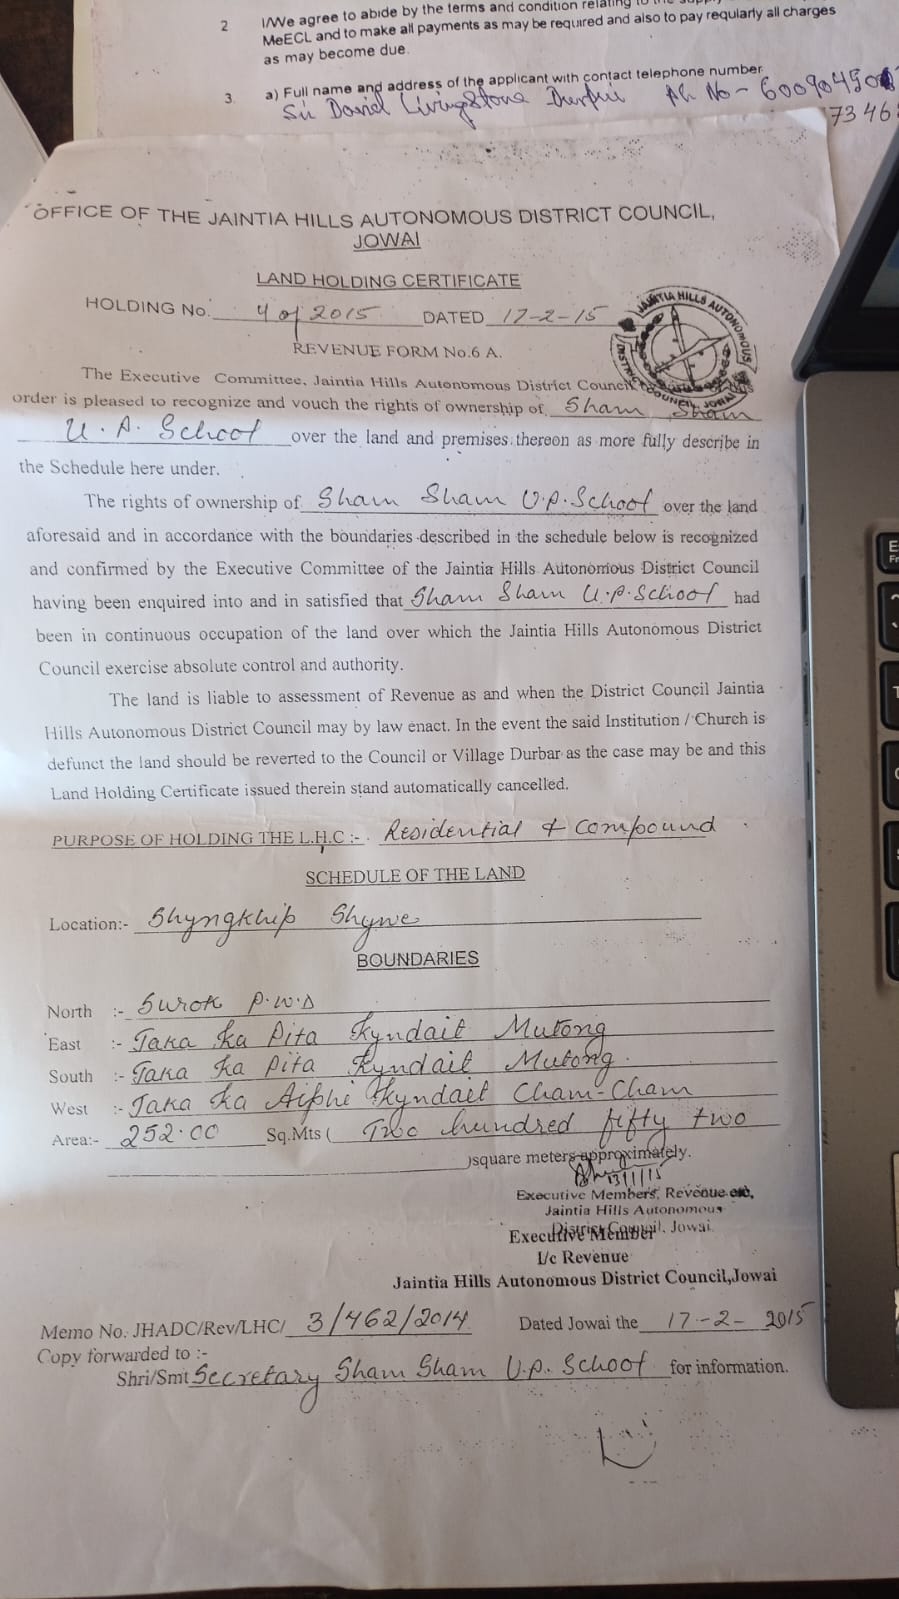 2 I/We agree to abide by the terms and condition relating to the
MeECL and to make all payments as may be required and also to pay regularly all charges
as may become due.
3. a) Full name and address of the applicant with contact telephone number
David Livingstone Ph No-
OFFICE OF THE JAINTIA HILLS AUTONOMOUS DISTRICT COUNCIL,
JOWAI
LAND HOLDING CERTIFICATE
HOLDING No. 4 of 2015 DATED 17-2-15
REVENUE FORM No.6 A.
JAINTIA HILLS AUTONOMOUS DISTRICT COUNCIL JOWAI
The Executive Committee, Jaintia Hills Autonomous District Council
order is pleased to recognize and vouch the rights of ownership of Sham Sham
U.P. School over the land and premises thereon as more fully describe in
the Schedule here under.
The rights of ownership of Sham Sham U.P. School over the land
aforesaid and in accordance with the boundaries described in the schedule below is recognized
and confirmed by the Executive Committee of the Jaintia Hills Autonomous District Council
having been enquired into and in satisfied that Sham Sham U.P. School had
been in continuous occupation of the land over which the Jaintia Hills Autonomous District
Council exercise absolute control and authority.
The land is liable to assessment of Revenue as and when the District Council Jaintia
Hills Autonomous District Council may by law enact. In the event the said Institution / Church is
defunct the land should be reverted to the Council or Village Durbar as the case may be and this
Land Holding Certificate issued therein stand automatically cancelled.
PURPOSE OF HOLDING THE L.H.C :- Residential & Compound
SCHEDULE OF THE LAND
Location:- Shyngkhip Shywe
BOUNDARIES
North :- Surok P.W.D
East :- Jaka ka Pita Kyndait Mutong
South :- Jaka ka Pita Kyndait Mutong.
West :- Jaka ka Aiphi Kyndait Cham-Cham
Area:- 252.00 Sq.Mts ( Two hundred fifty two
)square meters approximately.
13/1/15
Executive Members, Revenue etc,
Jaintia Hills Autonomous
District Council, Jowai
Executive Member
I/c Revenue
Jaintia Hills Autonomous District Council,Jowai
Memo No. JHADC/Rev/LHC/ 3/462/2014 Dated Jowai the 17-2-2015
Copy forwarded to :-
Shri/Smt Secretary Sham Sham U.P. School for information.